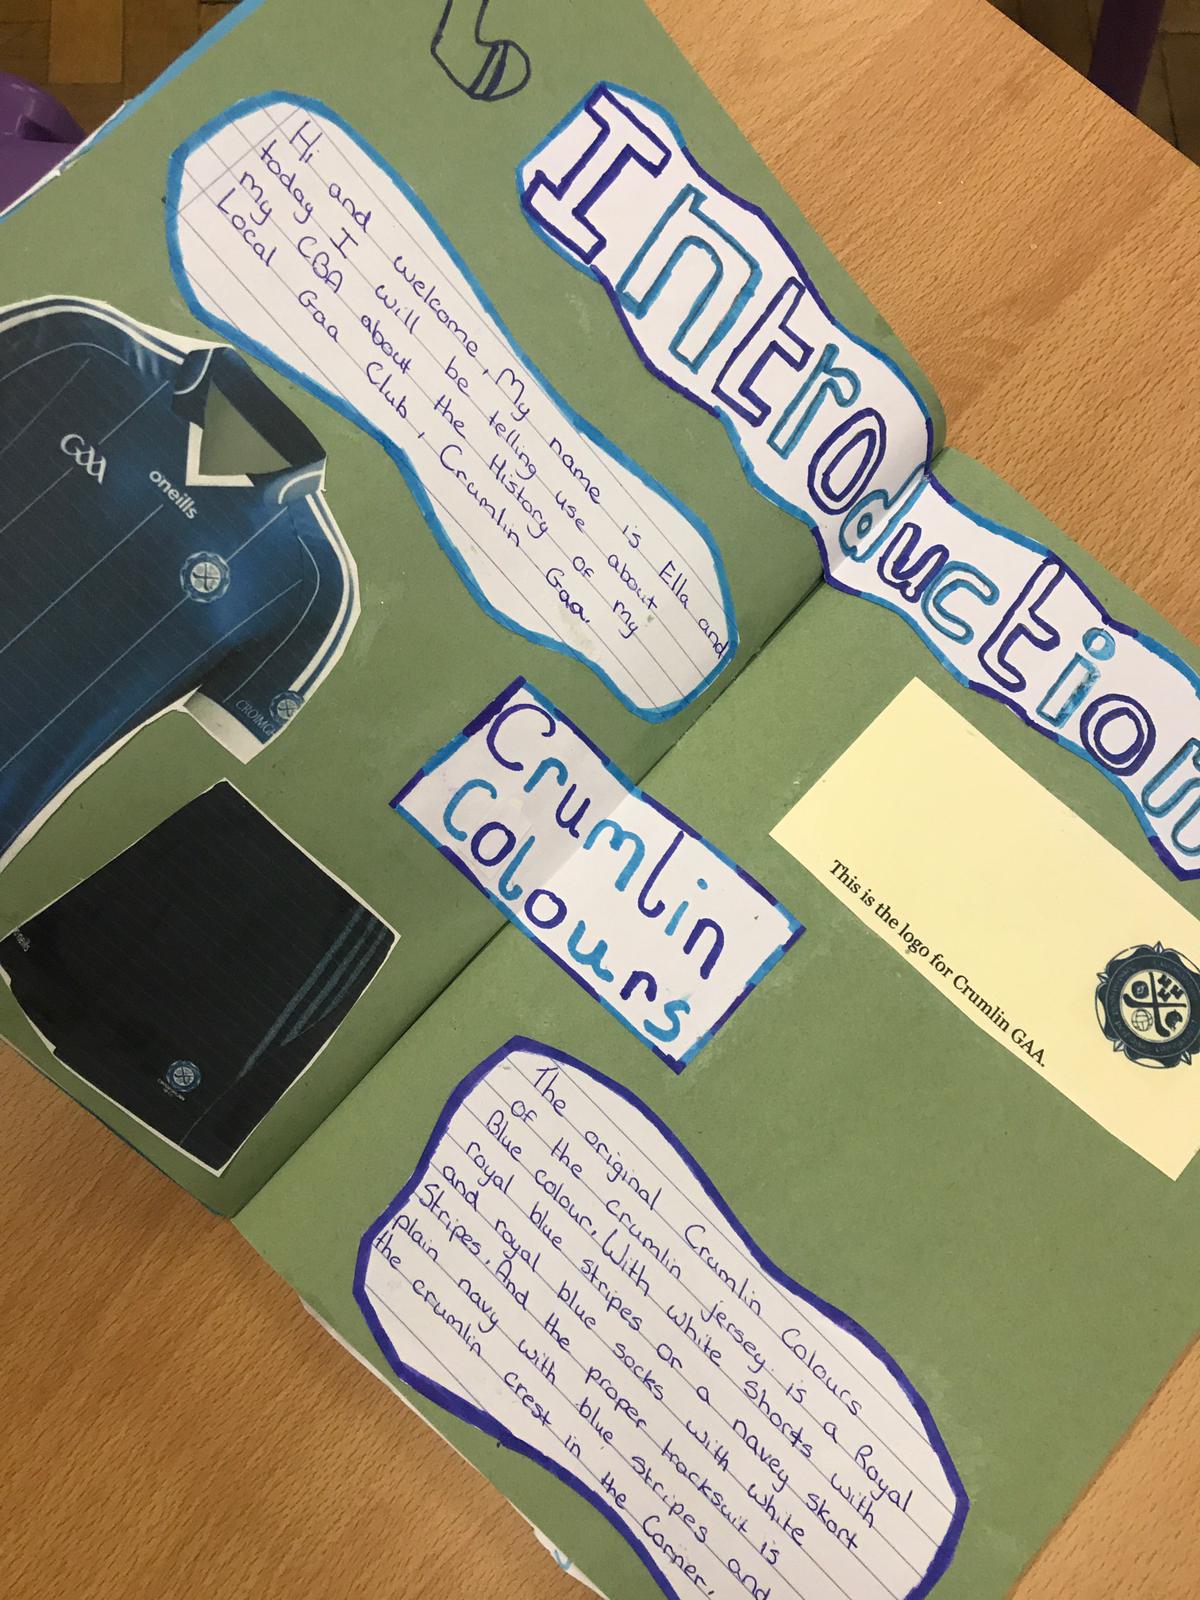 Introduction
Hi and welcome, My name is Ella and
today I will be telling use about
my CBA about the History of my
Local Gaa Club, Crumlin Gaa.
GAA
oneills
Crumlin
Colours
This is the logo for Crumlin GAA.
The original Crumlin Colours
of the crumlin jersey is a Royal
Blue colour, With white Shorts with
royal blue stripes or a navey skort
and royal blue socks with white
Stripes. And the proper tracksuit is
plain navy with blue stripes and
the crumlin crest in the Corner.